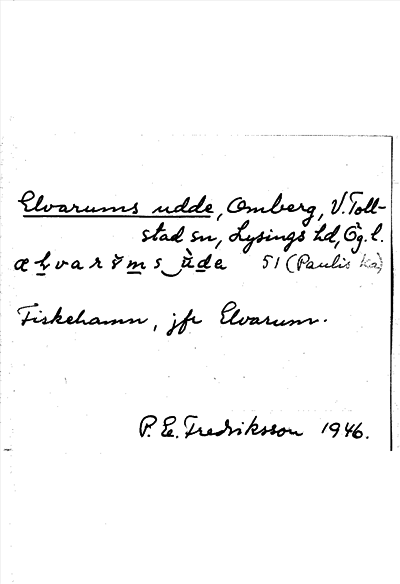 Elvarums udde, Omberg, V. Toll-
stad sn, Lysings hd, Ög. l.
51 (Paulis Ka)
Fiskehamn, jfr Elvarum.
P. E. Fredriksson 1946.